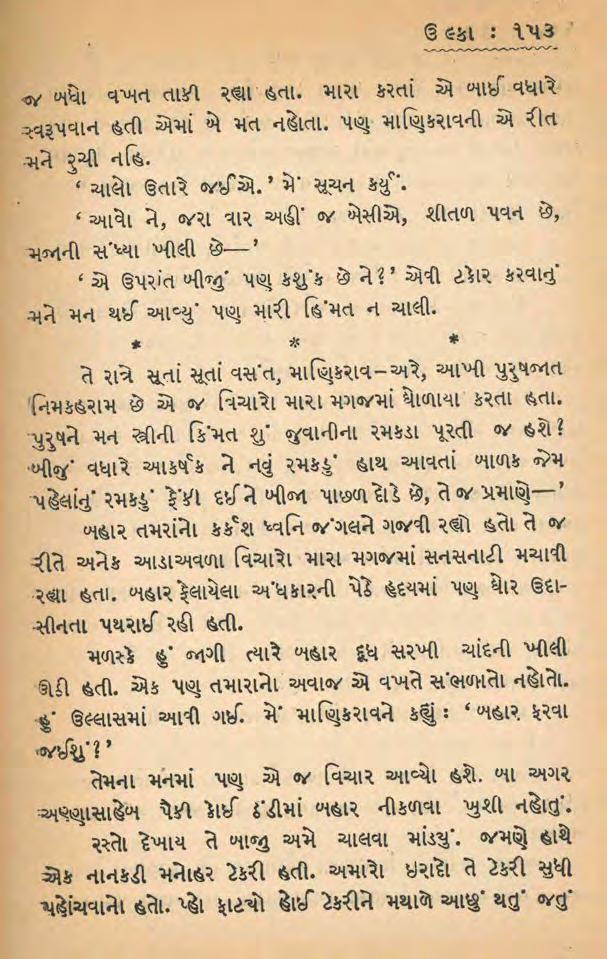 ઉલ્કા : ૧૫૩
જ બધો વખત તાકી રહ્યા હતા. મારા કરતાં એ બાઈ વધારે
સ્વરૂપવાન હતી એમાં બે મત નહોતા. પણ માણિકરાવની એ રીત
મને રુચી નહિ.
‘ ચાલો ઉતારે જઈએ. ’ મેં સૂચન કર્યું.
‘ આવો ને, જરા વાર અહીં જ બેસીએ, શીતળ પવન છે,
મજાની સંધ્યા ખીલી છે— ’
‘ એ ઉપરાંત બીજું પણ કશુંક છે ને? ’ એવી ટકોર કરવાનું
મને મન થઈ આવ્યું પણ મારી હિંમત ન ચાલી.
* * *
તે રાત્રે સૂતાં સૂતાં વસંત, માણિકરાવ–અરે, આખી પુરુષજાત
નિમકહરામ છે એ જ વિચારો મારા મગજમાં ઘોળાયા કરતા હતા.
પુરુષને મન સ્ત્રીની કિંમત શું જુવાનીના રમકડા પૂરતી જ હશે?
બીજું વધારે આકર્ષક ને નવું રમકડું હાથ આવતાં બાળક જેમ
પહેલાંનું રમકડું ફેંકી દઈને બીજા પાછળ દોડે છે, તે જ પ્રમાણે— ’
બહાર તમરાંનો કર્કશ ધ્વનિ જંગલને ગજવી રહ્યો હતો તે જ
રીતે અનેક આડાઅવળા વિચારો મારા મગજમાં સનસનાટી મચાવી
રહ્યા હતા. બહાર ફેલાયેલા અંધકારની પેઠે હૃદયમાં પણ ઘોર ઉદા-
સીનતા પથરાઈ રહી હતી.
મળસ્કે હું જાગી ત્યારે બહાર દૂધ સરખી ચાંદની ખીલી
ઊડી હતી. એક પણ તમારાનો અવાજ એ વખતે સંભળાતો નહોતો.
હું ઉલ્લાસમાં આવી ગઈ. મેં માણિકરાવને કહ્યું : ‘ બહાર ફરવા
જઈશું? ’
તેમના મનમાં પણ એ જ વિચાર આવ્યો હશે. બા અગર
અણ્ણાસાહેબ પૈકી કોઈ ઠંડીમાં બહાર નીકળવા ખુશી નહોતું.
રસ્તો દેખાય તે બાજુ અમે ચાલવા માંડ્યું. જમણે હાથે
એક નાનકડી મનોહર ટેકરી હતી. અમારો ઇરાદો તે ટેકરી સુધી
પહોંચવાનો હતો. પ્હો ફાટ્યો હોઈ ટેકરીને મથાળે આછું થતું જતું